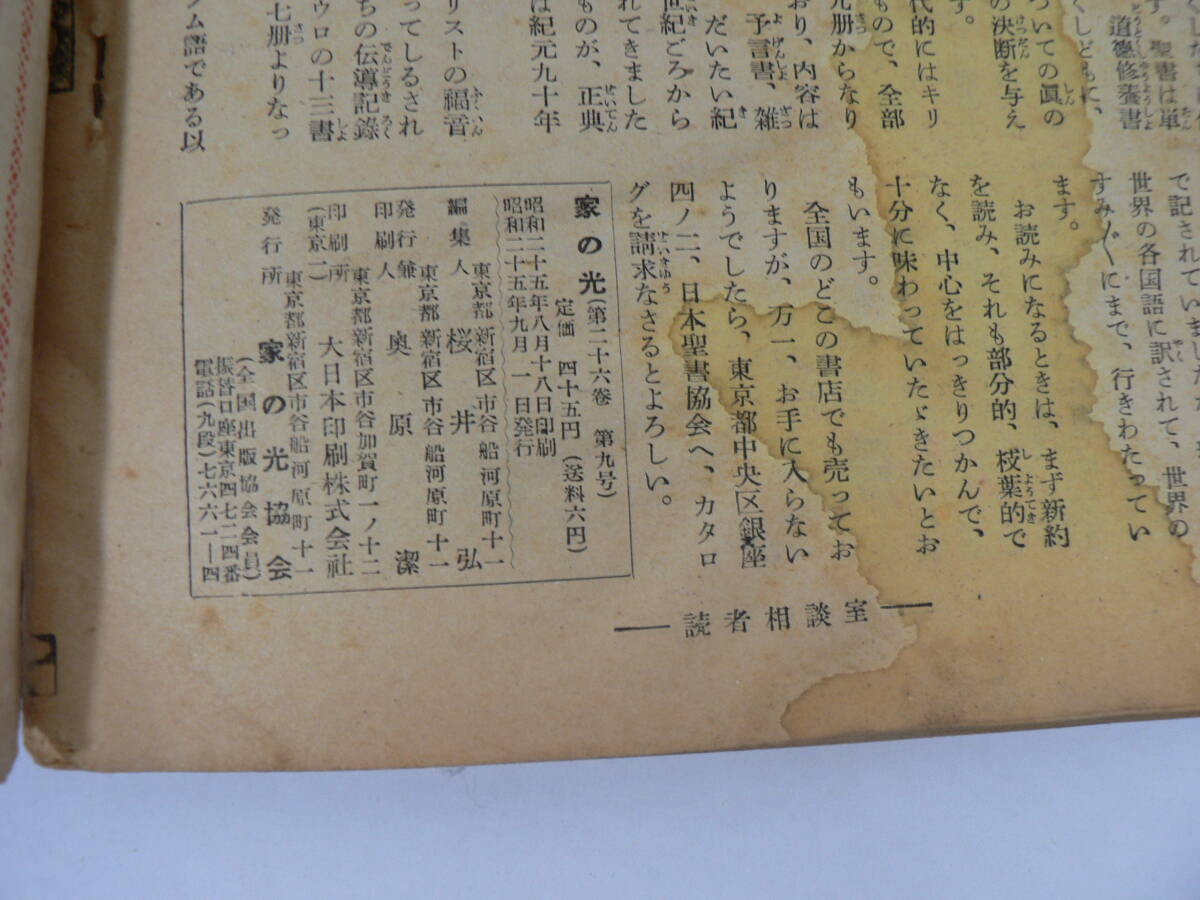 す。聖書は単
道徳修養書
くしどもに、
ついての眞の
の決断を与え
す。
代的にはキリ
もので、全部
九册からなり
おり、内容は
予言書、雑
だいたい紀
世紀ごろから
れてきました
ものが、正典
は紀元九十年
リストの福音
ってしるされ
ちの伝導記錄
ウロの十三書
七册よりなっ
ム語である以
世界の各国語に訳されて、世界の
すみ〴〵にまで、行きわたってい
ます。
お読みになるときは、まず新約
を読み、それも部分的、枝葉的で
なく、中心をはっきりつかんで、
十分に味わっていたゞきたいとお
もいます。
全国のどこの書店でも売ってお
りますが、万一、お手に入らない
ようでしたら、東京都中央区銀座
四ノ二、日本聖書協会へ、カタロ
グを請求なさるとよろしい。
―読者相談室―
家の光(第二十六卷 第九号)
定価 四十五円(送料六円)
昭和二十五年八月十八日印刷
昭和二十五年九月一日発行
東京都新宿区市谷船河原町十一
編集人 桜井弘
東京都新宿区市谷船河原町十一
発行兼印刷人 奥原潔
東京都新宿区市谷加賀町一ノ十二
印刷所 大日本印刷株式会社
(東京一)
東京都新宿区市谷船河原町十一
発行所 家の光協会
(全国出版協会会員)
振替口座東京四七二四番
電話(九段)七六六一―四